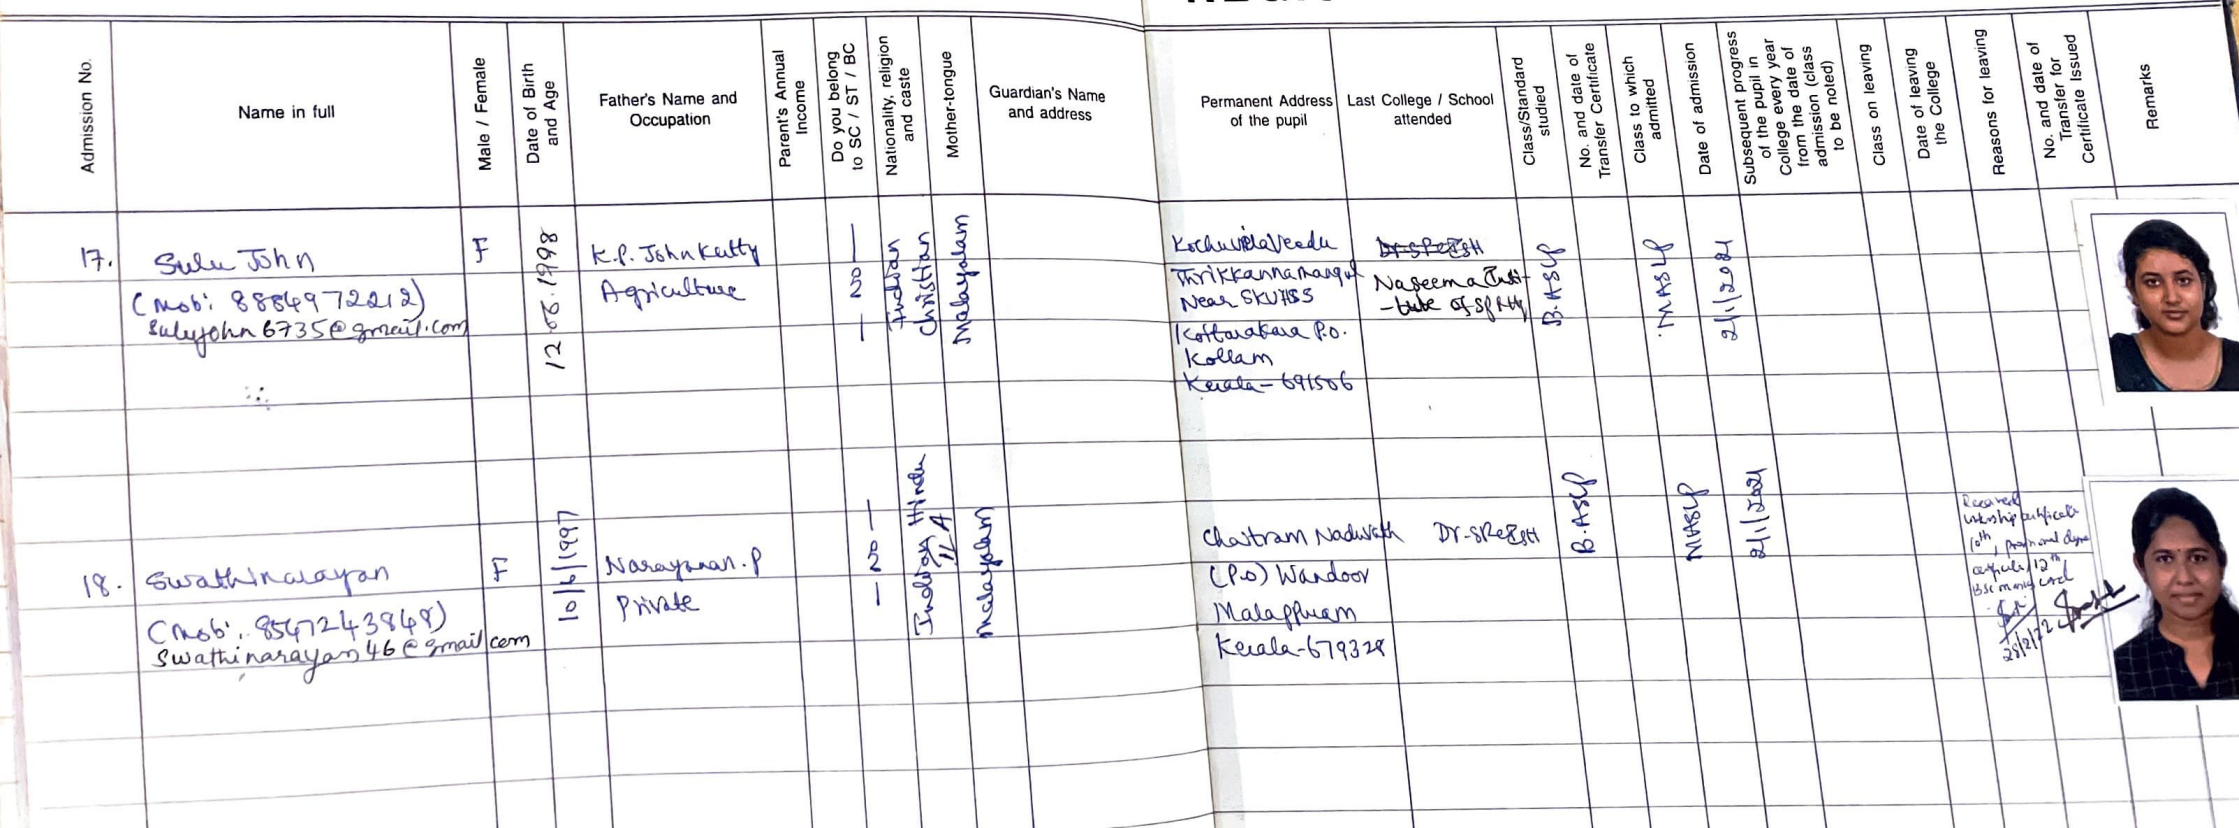 Admission No.
Name in full
Male / Female
Date of Birth
and Age
Father's Name and
Occupation
Parent's Annual
Income
Do you belong
to SC / ST / BC
Nationality, religion
and caste
Mother-tongue
Guardian's Name
and address
Permanent Address
of the pupil
Last College / School
attended
Class/Standard
studied
No. and date of
Transfer Certificate
Class to which
admitted
Date of admission
Subsequent progress
of the pupil in
College every year
from the date of
admission (class
to be noted)
Class on leaving
Date of leaving
the College
Reasons for leaving
No. and date of
Transfer for
Certificate Issued
Remarks
17.
Sulu John
(Mob: 8884972212)
sulujohn6735@gmail.com
F
12.06.1998
K.P. John Kutty
Agriculture
| No |
Indian
Christian
Malayalam
Kochuvila Veedu
Thrikkannamangal
Near SKVHSS
Kottarakara P.O.
Kollam
Kerala - 691506
Dr. SRCISH
Naseema Insti
-tute of Sp & Hg
B.ASLP
MASLP
2/1/2021
18.
Swathinarayan
(Mob: 8547243848)
swathinarayan46@gmail.com
F
10/6/1997
Narayanan.P
Private
| No |
Indian Hindu
Malayalam
Chaitram Naduvath
(P.o) Wandoor
Malappuram
Kerala-679328
Dr-SRCISH
B.ASLP
MASLP
2/1/2021
Received
certificate
10th, provisional degree
certificate/12th
28/2/22